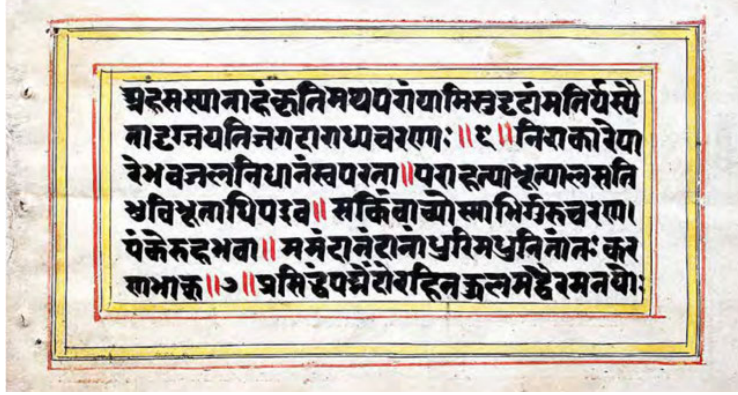 प्रहसस्यानाहंकृतिमथपरांयामिसुदृढांमतिर्यस्यै
नादृग्जयतिजगदाराध्यचरणः॥९॥निराकारेपा
रेभवजलनिधानंस्वपरता॥पराहत्याभूत्यालसति
भुविभूताधिपइव॥सकिंवाच्योस्माभिर्गुरुचरण।
पंकेरुहभवा॥ममंदानंदानांधुरिमधुनितांतःकर
णभाक्॥७॥प्रसिद्धपद्मेंदोरहिनज्जलमद्वैरमनयोः